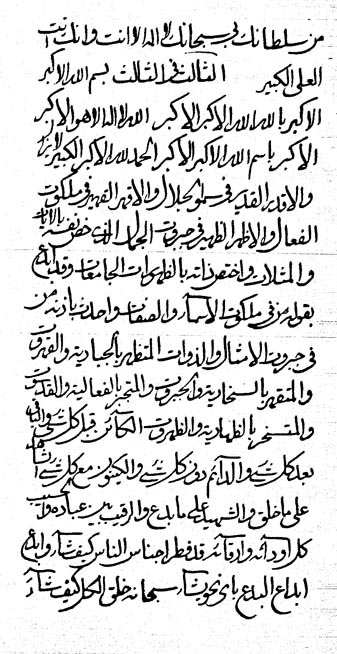 من سلطانك لي سبحانك لا اله الا انت وانك انت
العلى الكبير الثالث فى الثالث بسم الله الاكبر
الاكبر بالله الله الاكبر الاكبر الله لا اله الا هو الاكبر
الاكبر باسم الله الاكبر الاكبر الحمد لله الاكبر الكبير
والاقدر القدير فى سمو الجلال والاقهر القهير فى ملكوت
الفعال والاظهر الظهير فى جبروت الجمال الذى خص نفسه
والمثلات واختص ذاته بالظهورات الجامعات وقد ابدع
بقوله من فى ملكوت الاسماء والصفات واحدث باذنه من
فى جبروت الامثال والذوات المتظهر بالجبارية والقهروت
والمتقهر بالسخارية والجبروت والمتجبر بالفعالية والقدروت
والمتسخر بالظهارية والظهروت الكائن قبل كل شئ
بعد كل شئ والدائم دون كل شئ والكينون مع كل شئ
على ما خلق والشهيد على ما ابدع والرقيب بين عباده
كل اودائه وارقائه قد فطر اجناس الناس كيف شاء وابدع
ابداع البدع باى نحو شاء سبحانه خلق الكل كيف شاء